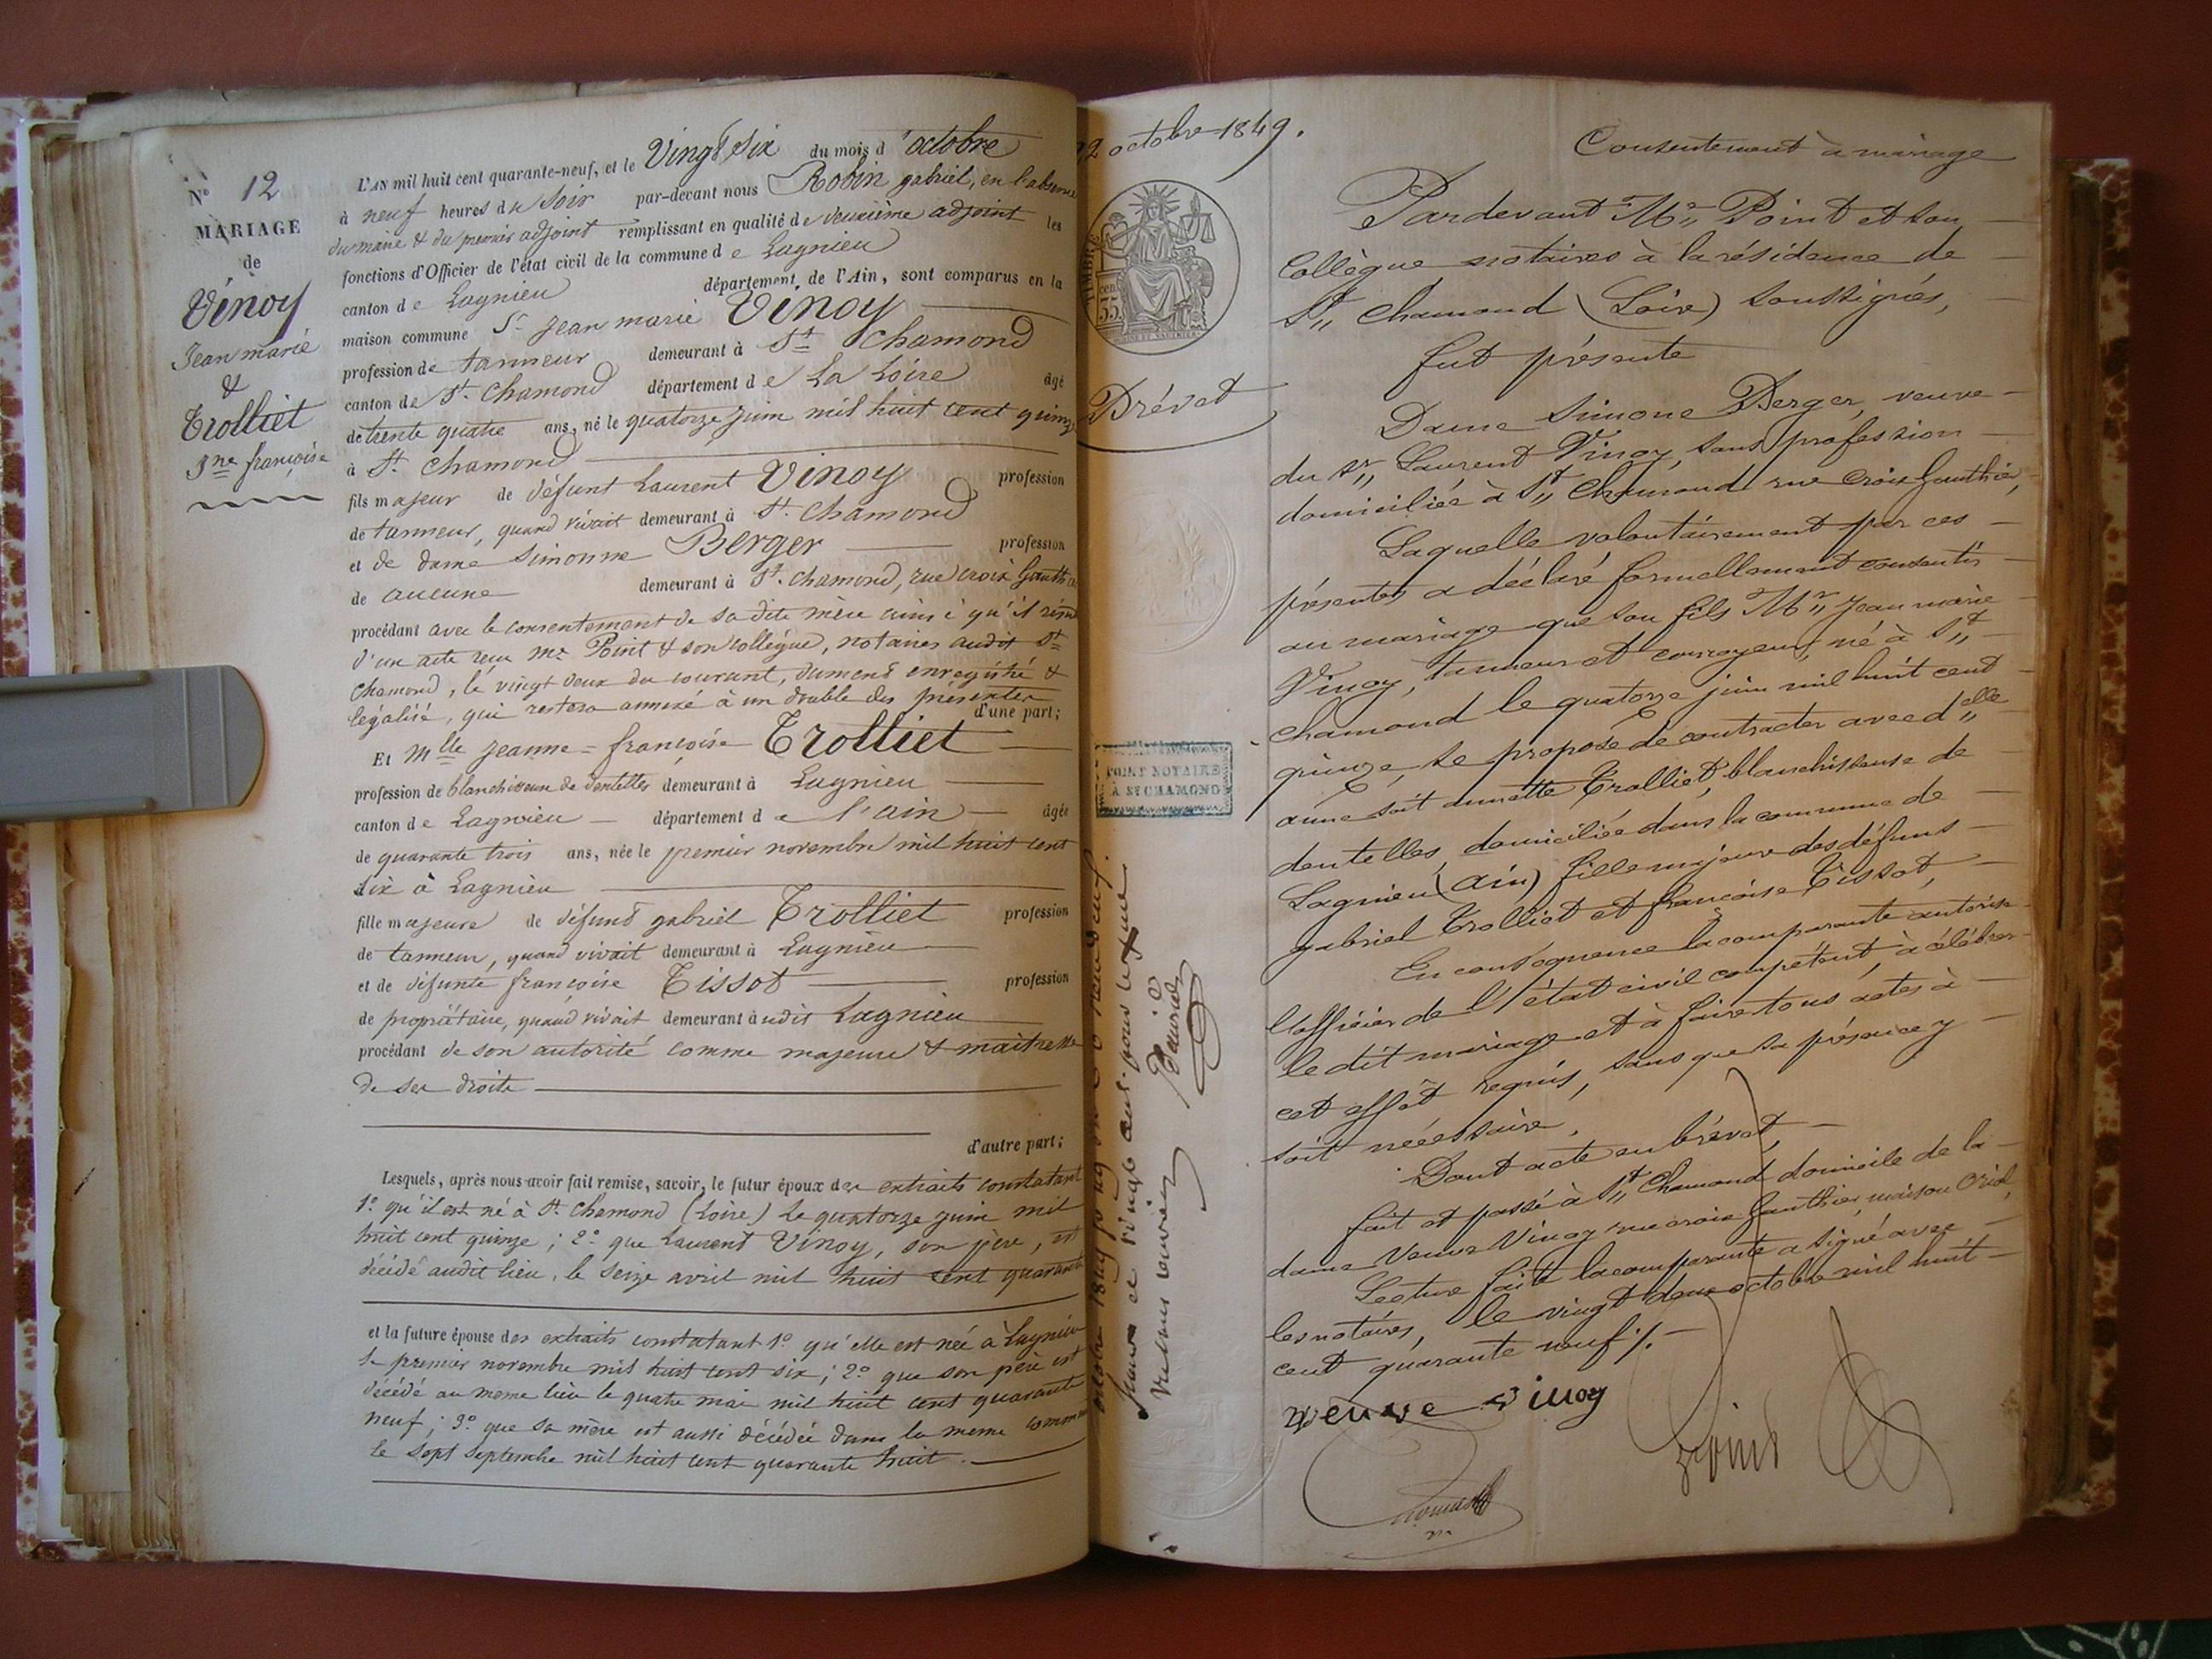 N° 12
MARIAGE
de
Vinoy
Jean marie
&
Trolliet
Jne françoise
L'AN mil huit cent quarante-neuf, et le Vingt Six du mois d'octobre
à neuf heures du Soir par-devant nous Robin gabriel, en l'absence
du maire & du premier adjoint remplissant en qualité de deuxième adjoint les
fonctions d'Officier de l'état civil de la commune de Lagnieu
canton de Lagnieu département de l'Ain, sont comparus en la
maison commune Sr Jean marie Vinoy
profession de tanneur demeurant à St Chamond
canton de St Chamond département de La Loire âgé
de trente quatre ans, né le quatorze juin mil huit cent quinze
à St Chamond
fils majeur de défunt Laurent Vinoy profession
de tanneur, quand vivait demeurant à St Chamond
et de dame Simonne Berger profession
de aucune demeurant à St. Chamond, rue croix Gauthier
procédant avec le consentement de sa dite mère ainsi qu'il résulte
d'un acte reçu Mr Point & son collègue, notaires audit St
Chamond, le vingt deux du courant, dument enregistré &
légalisé, qui restera annexé à un double des présentes
d'une part;
Et Mlle Jeanne-françoise Trolliet
profession de blanchisseuse de dentelles demeurant à Lagnieu
canton de Lagnieu département de l'ain âgée
de quarante trois ans, née le premier novembre mil huit cent
six à Lagnieu
fille majeure de défunt gabriel Trolliet profession
de tanneur, quand vivait demeurant à Lagnieu
et de défunte françoise Tissot profession
de propriétaire, quand vivait demeurant audit Lagnieu
procédant de son autorité comme majeure & maitresse
de ses droits
d'autre part;
Lesquels, après nous avoir fait remise, savoir, le futur époux des extraits constatant
1° qu'il est né à St Chamond (Loire) le quatorze juin mil
huit cent quinze; 2° que Laurent Vinoy, son père, est
décédé audit lieu, le seize avril mil huit cent quarante
et la future épouse des extraits constatant 1° qu'elle est née à Lagnieu
le premier novembre mil huit cent six; 2° que son père est
décédé au meme lieu le quatre mai mil huit cent quarante
neuf; 3° que sa mère est aussi décédée dans la meme commune
le sept septembre mil huit cent quarante huit.
22 octobre 1849.
TIMBRE
55
Brévet
POINT NOTAIRE
A ST CHAMOND
Consentement à mariage
Pardevant Mr Point et son
Collègue notaires à la résidence de
St Chamond (Loire) soussignés,
fut présente
Dame Simone Berger, veuve
du Sr Laurent Vinoy, sans profession
domiciliée à St Chamond rue Croix Gauthier,
Laquelle volontairement par ces
présentes a déclaré formellement consentir
au mariage que son fils Mr Jean marie
Vinoy, tanneur et corroyeur, né à St
Chamond le quatorze juin mil huit cent
quinze, se propose de contracter avec delle
anne soit annette Trolliet, blanchisseuse de
dentelles, domiciliée dans la commune de
Lagnieu (Ain) fille majeure des défunts
gabriel Trolliet et françoise Tissot,
En conséquence la comparante autorise
l'officier de l'état civil compétent, à célébrer
le dit mariage et à faire tous actes à
cet effet requis, sans que sa présence y
soit nécessaire.
Dont acte en brévet,
fait et passé à St Chamond domicile de la
dame Veuve Vinoy rue croix Gauthier, maison Oriol,
Lecture faite la comparante a signé avec
les notaires, le vingt deux octobre mil huit
cent quarante neuf ./.
veuve vinoy
Point